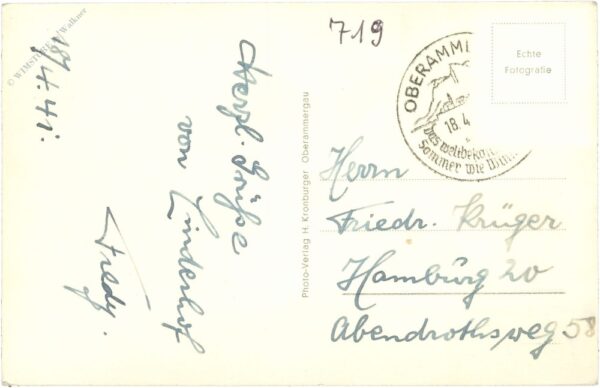 © WIMSTORIA/Walkner
18/4.41.
Herzl. Grüße
von Linderhof
Fredy.
Photo-Verlag H. Kronburger Oberammergau
719
OBERAMME
18.4
Das weltbekan
Sommer wie Win
Echte
Fotografie
Herrn
Friedr. Krüger
Hamburg 20
Abendrothsweg 58